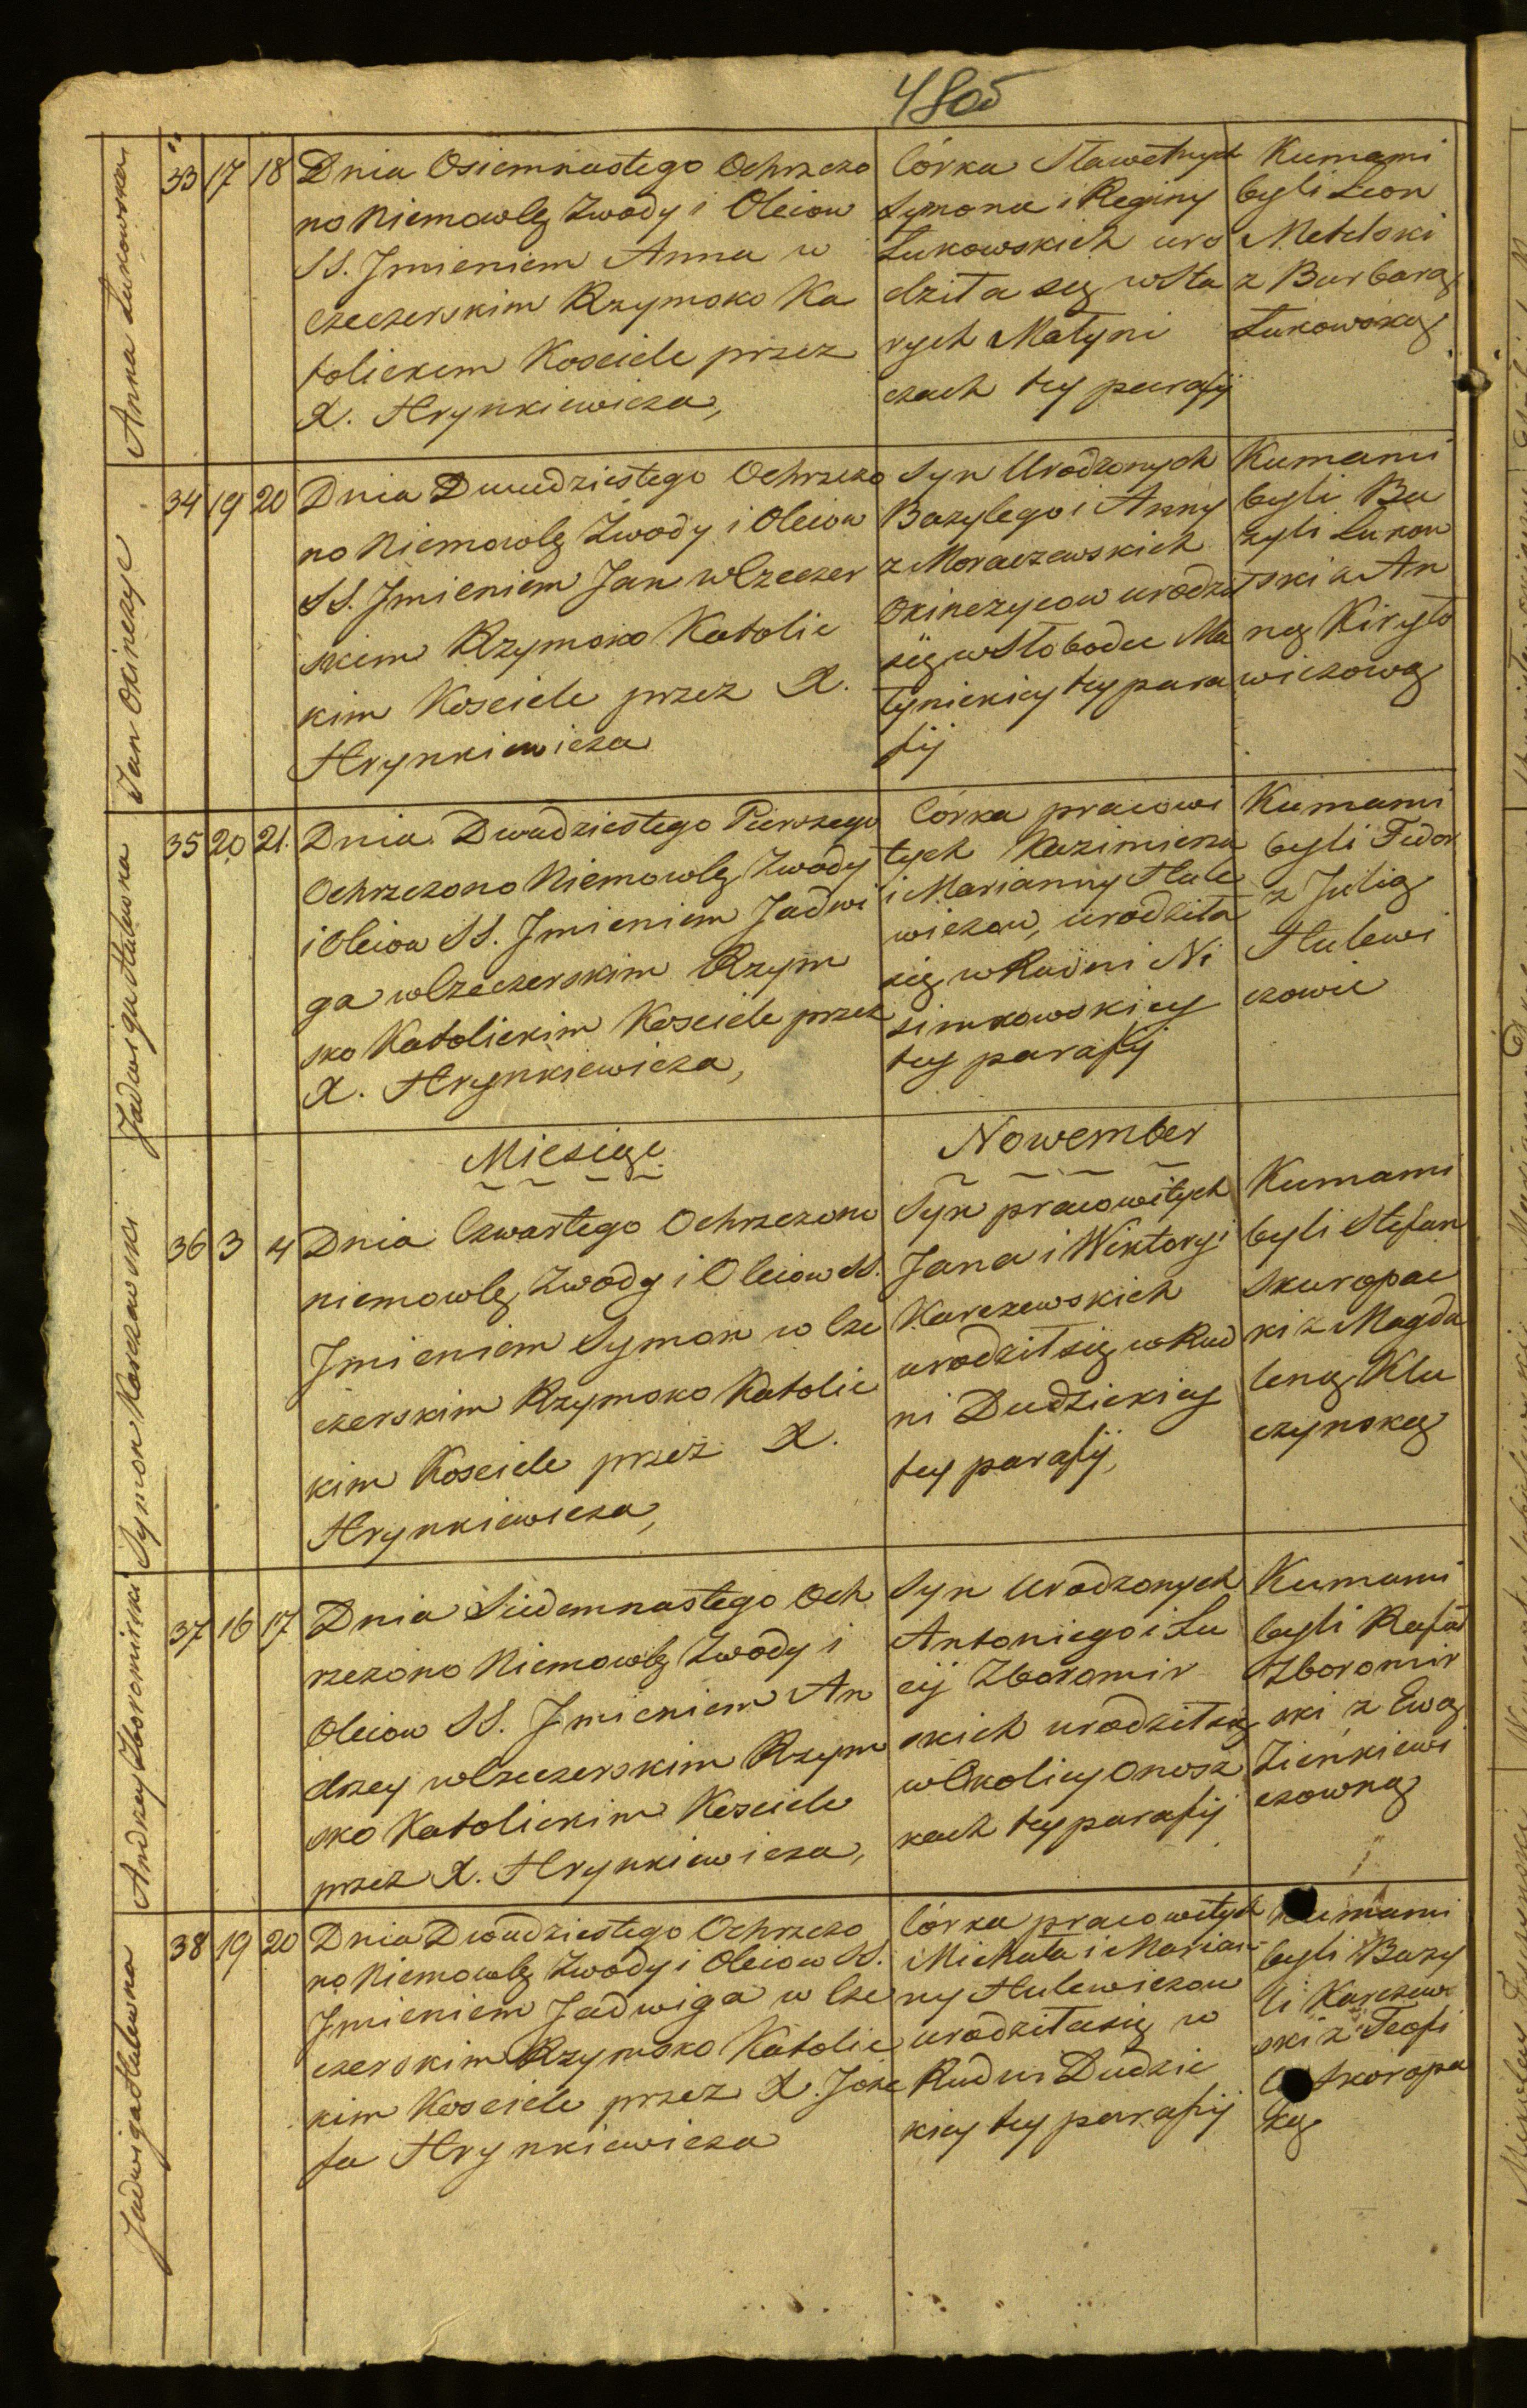 48об
Anna Łukowska
33 17 18
Dnia Osiemnastego Ochrzczo
no Niemowlę Zwody i Oleiow
SS. Jmieniem Anna w
Czeczerskim Rzymsko Ka
tolickim Kosciele przez
X. Hrynkiewicza,
Córka Sławetnych
Symona i Reginy
Łukowskich uro
dziła się w Sta
rych Małyni
czach tey parafij
Kumami
byli Leon
Metelski
z Barbarą
Łukowską
Jan Okinczyc
34 19 20
Dnia Dwudziestego Ochrzczo
no Niemowlę Zwody i Oleiow
SS. Jmieniem Jan w Czeczer
skim Rzymsko Katolic
kim Kosciele przez X.
Hrynkiewicza
Syn Urodzonych
Bazylego i Anny
z Moraczewskich
Okinczycow urodził
się w Słobodce Ma
łynickiey tey para
fij
Kumami
byli Ba
zyli Łukow
ski z An
ną Kiryło
wiczową
Jadwiga Hulewna
35 20 21.
Dnia Dwudziestego Pierwszego
Ochrzczono Niemowlę Zwody
i Oleiow SS. Jmieniem Jadwi
ga w Czeczerskim Rzym
sko Katolickim Kosciele przez
X. Hrynkiewicza,
Córka pracowi
tych Kazimierza
i Marianny Hule
wiczow, urodziła
się w Rudni Ni
simkowskiey
tey parafij
Kumami
byli Fidor
z Julią
Hulewi
czowie
Miesiąc Nowember
Symon Karczewski
36 3 4
Dnia Czwartego Ochrzczono
niemowlę Zwody i Oleiow SS.
Jmieniem Symon w Cze
czerskim Rzymsko Katolic
kim Kosciele przez X.
Hrynkiewicza,
Syn pracowitych
Jana i Wiktoryi
Karczewskich
urodził się w Rud
ni Dudzickiey
tey parafij,
Kumami
byli Stefan
Skuropac
ki z Magda
leną Klu
czynską
Andrzey Zboromirski
37 16 17
Dnia Siedemnastego Och
rzczono Niemowlę Zwody i
Oleiow SS. Jmieniem An
drzey w Czeczerskim Rzym
sko Katolickim Kosciele
przez X. Hrynkiewicza,
Syn Urodzonych
Antoniego i Łu
cij Zboromir
skich urodził się
w Okolicy Onosz
kach tey parafij
Kumami
byli Rafał
Zboromir
ski z Ewą
Zieńkiewi
czowną
Jadwiga Hulewna
38 19 20
Dnia Dwudziestego Ochrzczo
no Niemowlę Zwody i Oleiow SS.
Jmieniem Jadwiga w Cze
czerskim Rzymsko Katolic
kim Kosciele przez X. Joze
fa Hrynkiewicza
Córka pracowitych
Michała i Marian
ny Hulewiczow
urodziła się w
Rudni Dudzic
kiey tey parafij
Kumami
byli Bazy
li Karczew
ski z Teofi
Skoropa
cką